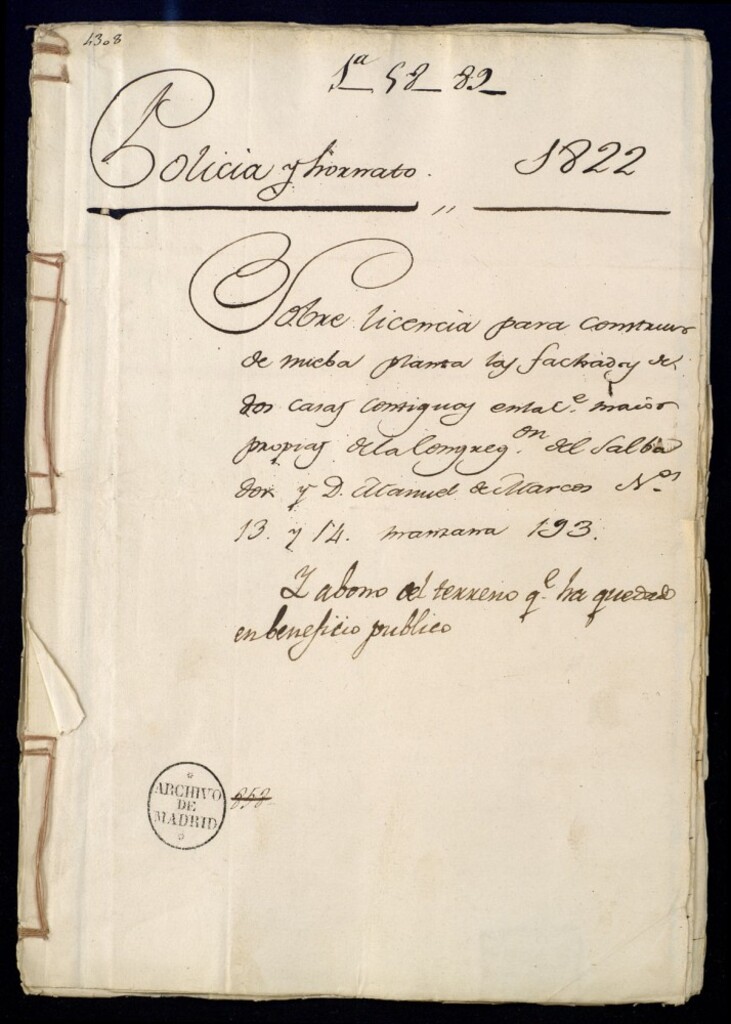 4308
1ª 58 89
Policia y hornato. 1822
Sobre licencia para construir
de nueba planta las fachadas de
dos casas contiguas en la C.e maior
propias de la Congreg.on del Salba
dor y D. Manuel de Marcos N.os
13. y 14. manzana 193.
Y abono del terreno q.e ha quedado
en beneficio publico
ARCHIVO
DE
MADRID